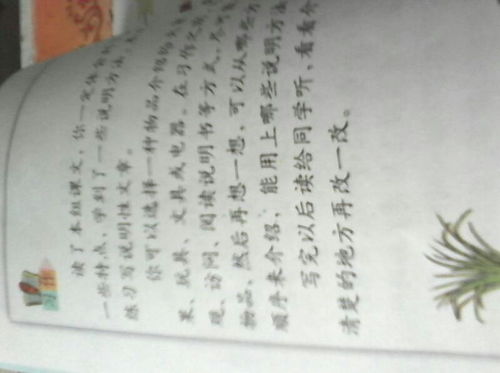 习作
读了本组课文，你一定体会到
一些特点，学到了一些说明方法，
练习写说明性文章。
你可以选择一种物品介绍给大家
果、玩具、文具或电器。在习作之前
观、访问、阅读说明书等方式，尽可
物品，然后再想一想，可以从哪些方
顺序来介绍、能用上哪些说明方法
写完以后读给同学听，看看介
清楚的地方再改一改。